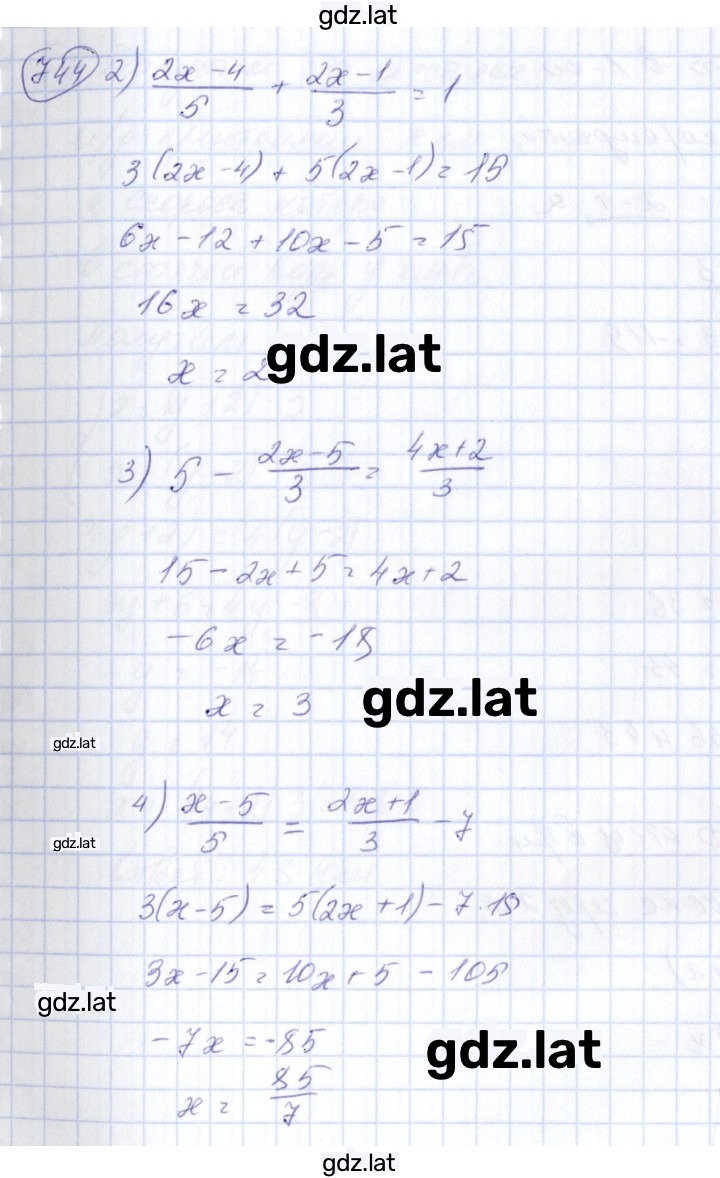 gdz.lat
744 2) (2x-4)/5 + (2x-1)/3 = 1
3(2x-4) + 5(2x-1) = 15
6x - 12 + 10x - 5 = 15
16x = 32
x = 2
gdz.lat
3) 5 - (2x-5)/3 = (4x+2)/3
15 - 2x + 5 = 4x + 2
-6x = -18
x = 3
gdz.lat
gdz.lat
4) (x-5)/5 = (2x+1)/3 - 7
gdz.lat
3(x-5) = 5(2x+1) - 7·15
3x - 15 = 10x + 5 - 105
gdz.lat
-7x = -85
gdz.lat
x = 85/7
gdz.lat